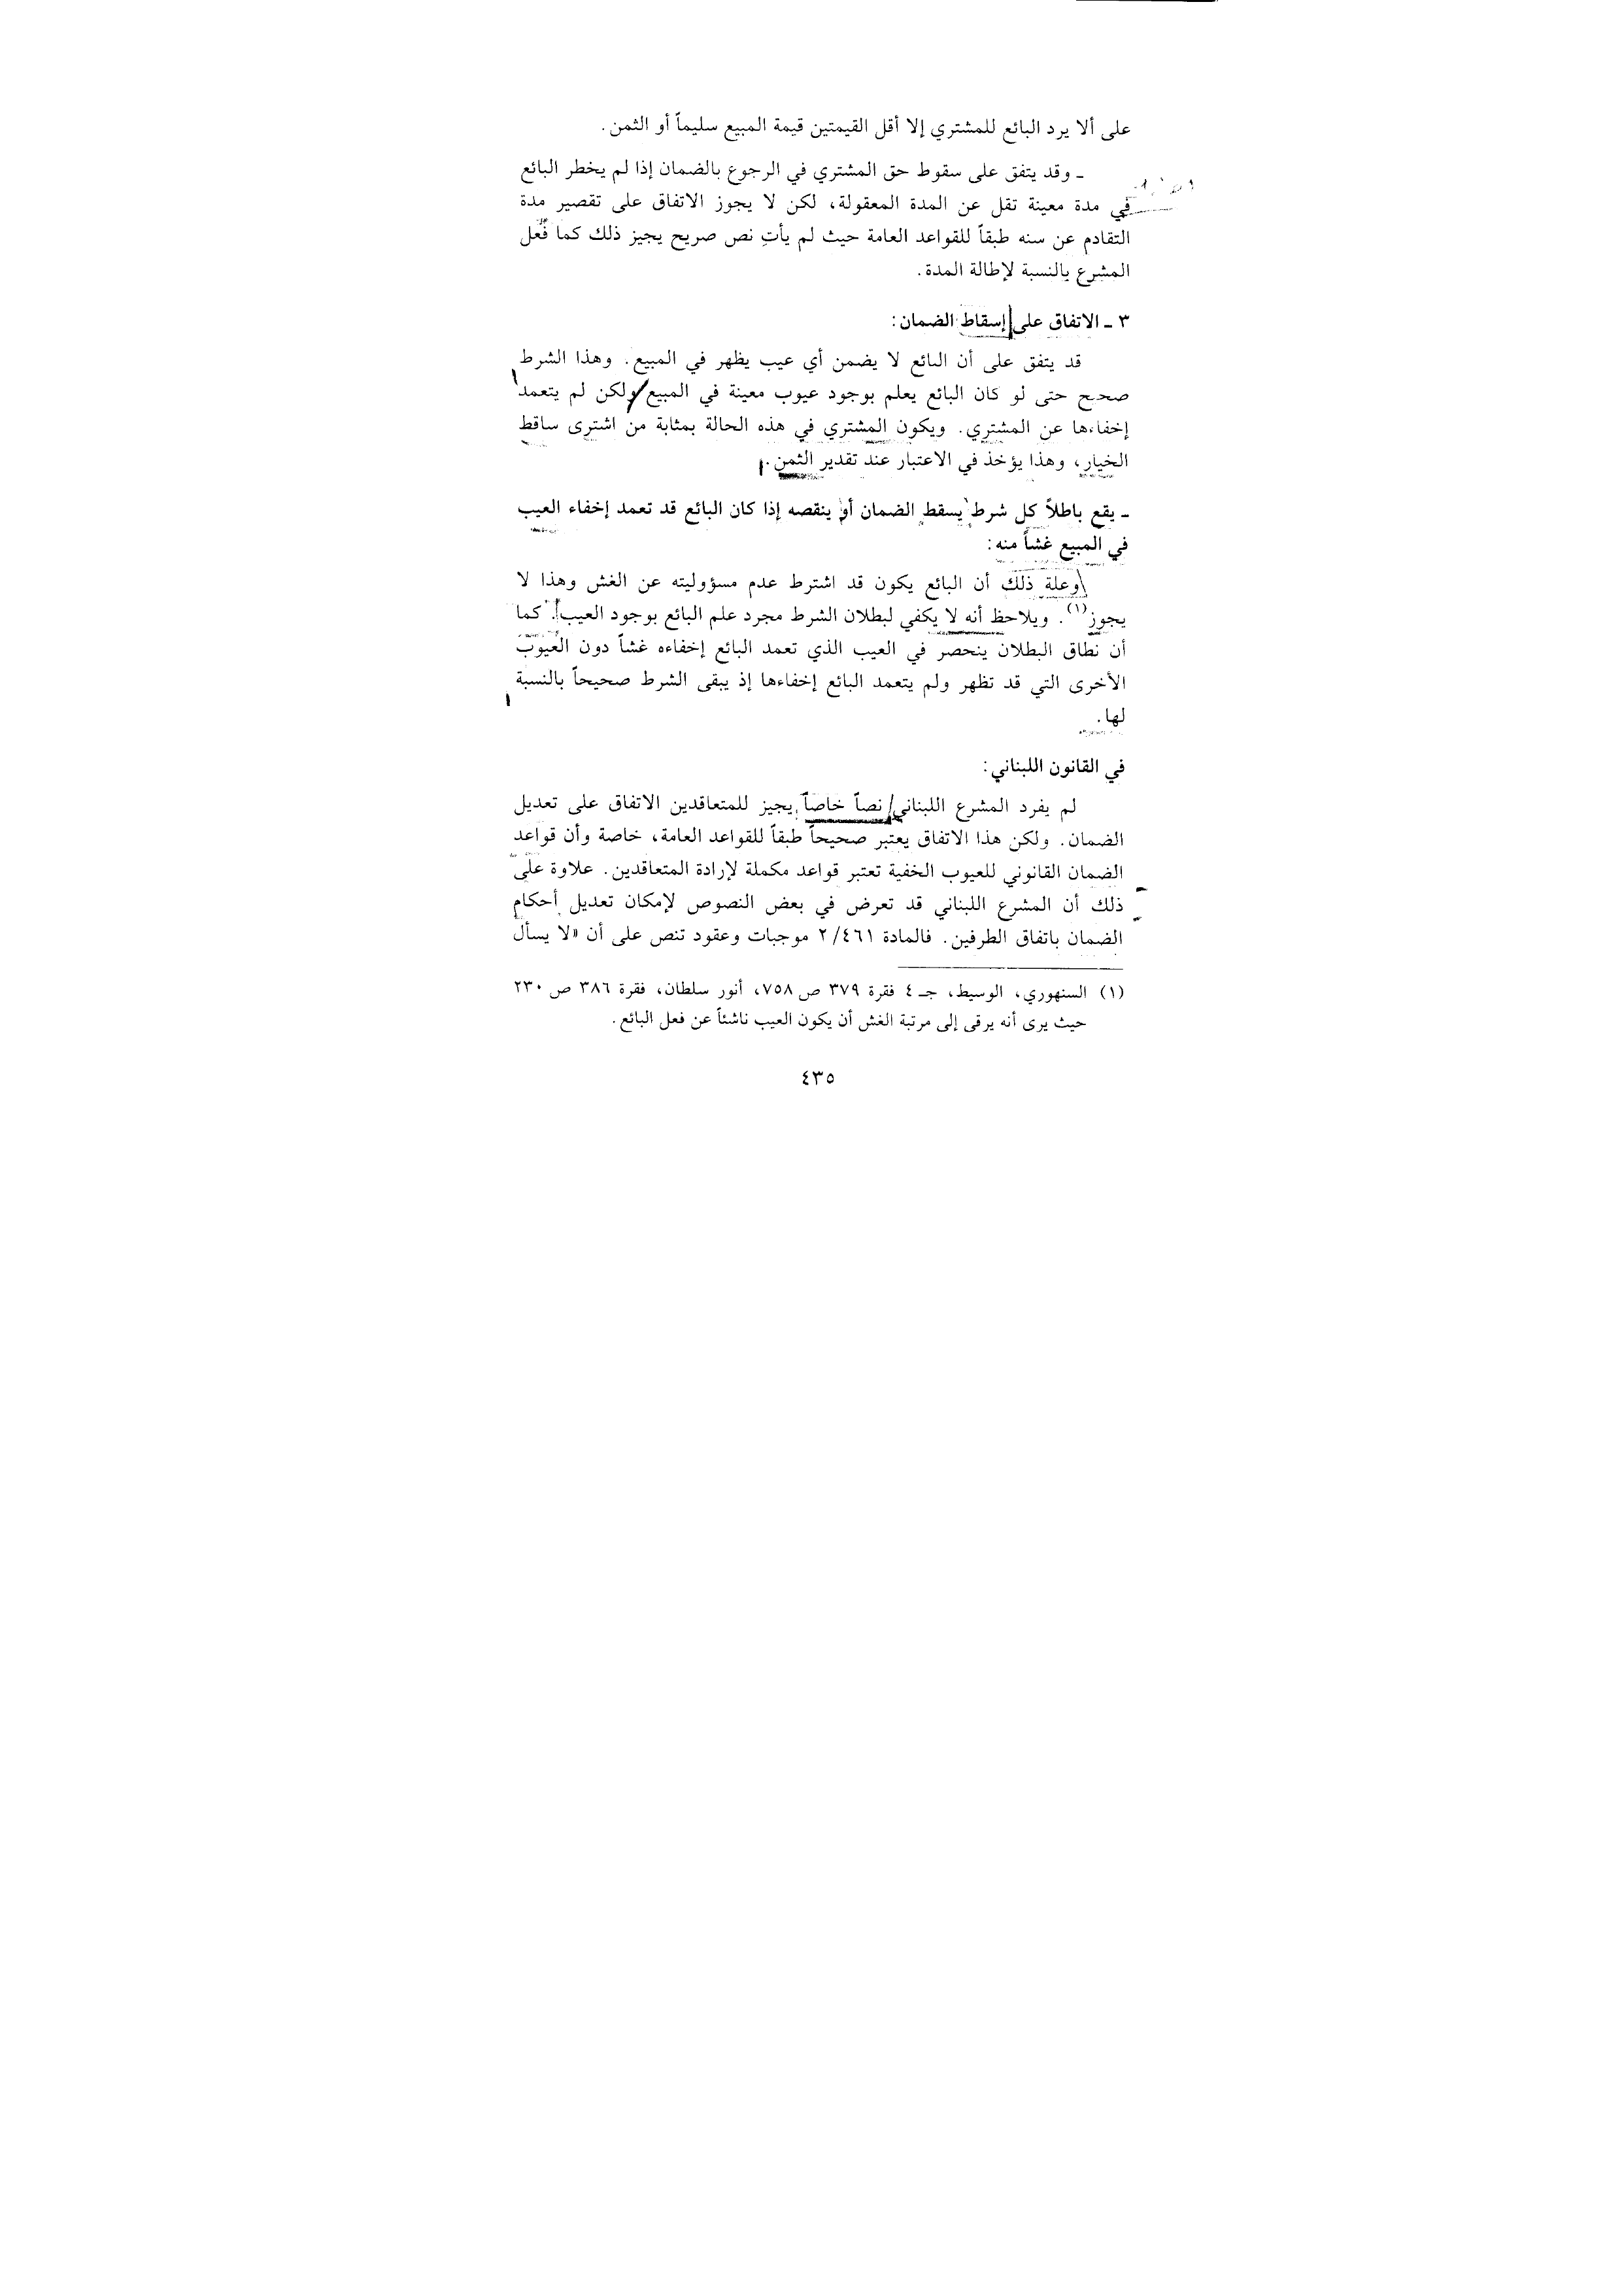 على ألا يرد البائع للمشتري إلا أقل القيمتين قيمة المبيع سليماً أو الثمن.
ـ وقد يتفق على سقوط حق المشتري في الرجوع بالضمان إذا لم يخطر البائع
في مدة معينة تقل عن المدة المعقولة، لكن لا يجوز الاتفاق على تقصير مدة
التقادم عن سنه طبقاً للقواعد العامة حيث لم يأتِ نص صريح يجيز ذلك كما فعل
المشرع بالنسبة لإطالة المدة.
٣ ـ الاتفاق على إسقاط الضمان:
قد يتفق على أن البائع لا يضمن أي عيب يظهر في المبيع. وهذا الشرط
صحيح حتى لو كان البائع يعلم بوجود عيوب معينة في المبيع ولكن لم يتعمد
إخفاءها عن المشتري. ويكون المشتري في هذه الحالة بمثابة من اشترى ساقط
الخيار، وهذا يؤخذ في الاعتبار عند تقدير الثمن.
ـ يقع باطلاً كل شرط يسقط الضمان أو ينقصه إذا كان البائع قد تعمد إخفاء العيب
في المبيع غشاً منه:
وعلة ذلك أن البائع يكون قد اشترط عدم مسؤوليته عن الغش وهذا لا
يجوز(١). ويلاحظ أنه لا يكفي لبطلان الشرط مجرد علم البائع بوجود العيب. كما
أن نطاق البطلان ينحصر في العيب الذي تعمد البائع إخفاءه غشاً دون العيوب
الأخرى التي قد تظهر ولم يتعمد البائع إخفاءها إذ يبقى الشرط صحيحاً بالنسبة
لها.
في القانون اللبناني:
لم يفرد المشرع اللبناني نصاً خاصاً يجيز للمتعاقدين الاتفاق على تعديل
الضمان. ولكن هذا الاتفاق يعتبر صحيحاً طبقاً للقواعد العامة، خاصة وأن قواعد
الضمان القانوني للعيوب الخفية تعتبر قواعد مكملة لإرادة المتعاقدين. علاوة على
ذلك أن المشرع اللبناني قد تعرض في بعض النصوص لإمكان تعديل أحكام
الضمان باتفاق الطرفين. فالمادة ٢/٤٦١ موجبات وعقود تنص على أن «لا يسأل
(١) السنهوري، الوسيط، جـ ٤ فقرة ٣٧٩ ص ٧٥٨، أنور سلطان، فقرة ٣٨٦ ص ٢٣٠
حيث يرى أنه يرقى إلى مرتبة الغش أن يكون العيب ناشئاً عن فعل البائع.
٤٣٥